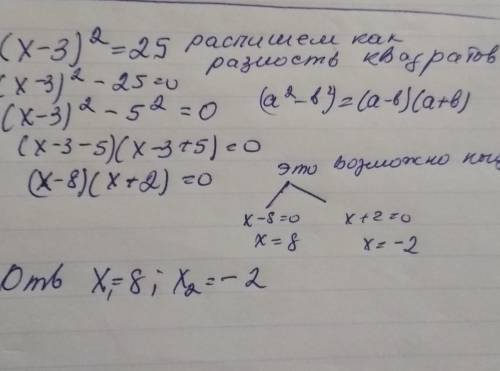 (x-3)² = 25 распишем как
разность квадратов
(x-3)² - 25 = 0
(x-3)² - 5² = 0 (a² - b²) = (a-b)(a+b)
(x-3-5)(x-3+5) = 0
это возможно
(x-8)(x+2) = 0
x-8=0 x+2=0
x=8 x=-2
Отв x₁=8; x₂=-2